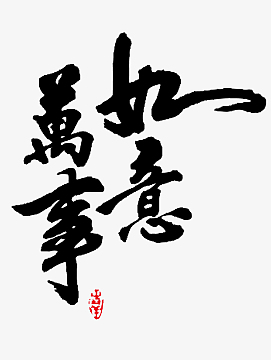 如意
萬事